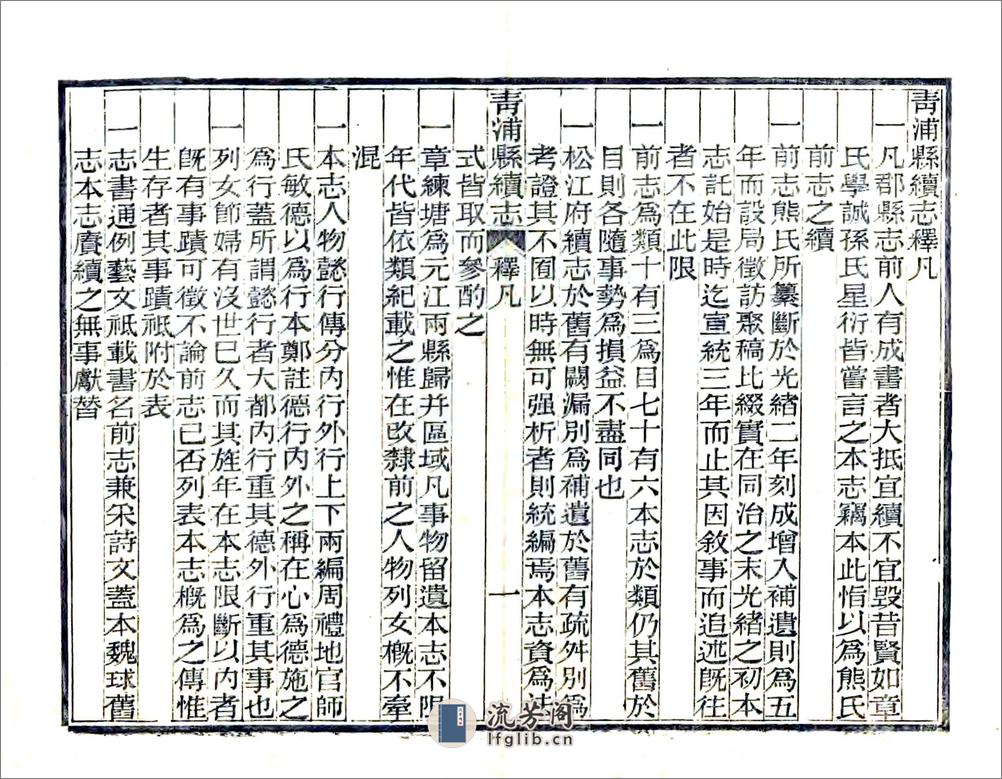 青浦縣續志釋凡
一凡郡縣志前人有成書者大抵宜續不宜毀昔賢如章
氏學誠孫氏星衍皆嘗言之本志竊本此恉以爲熊氏
前志之續
一前志熊氏所纂斷於光緒二年刻成增入補遺則爲五
年而設局徵訪聚稿比綴實在同治之末光緒之初本
志託始是時迄宣統三年而止其因敘事而追述旣往
者不在此限
一前志爲類十有三爲目七十有六本志於類仍其舊於
目則各隨事勢爲損益不盡同也
一松江府續志於舊有闕漏別爲補遺於舊有疏舛別爲
考證其不囿以時無可强析者則統編焉本志資爲法
青浦縣續志 釋凡 一
式皆取而參酌之
一章練塘爲元江兩縣歸并區域凡事物留遺本志不限
年代皆依類紀載之惟在改隸前之人物列女槪不牽
混
一本志人物懿行傳分內行外行上下兩編周禮地官師
氏敏德以爲行本鄭註德行內外之稱在心爲德施之
爲行蓋所謂懿行者大都內行重其德外行重其事也
一列女節婦有沒世已久而其旌年在本志限斷以內者
旣有事蹟可徵不論前志已否列表本志槪爲之傳惟
生存者其事蹟祇附於表
一志書通例藝文祇載書名前志兼采詩文蓋本魏球舊
志本志賡續之無事獻替
流芳阁
lfglib.cn